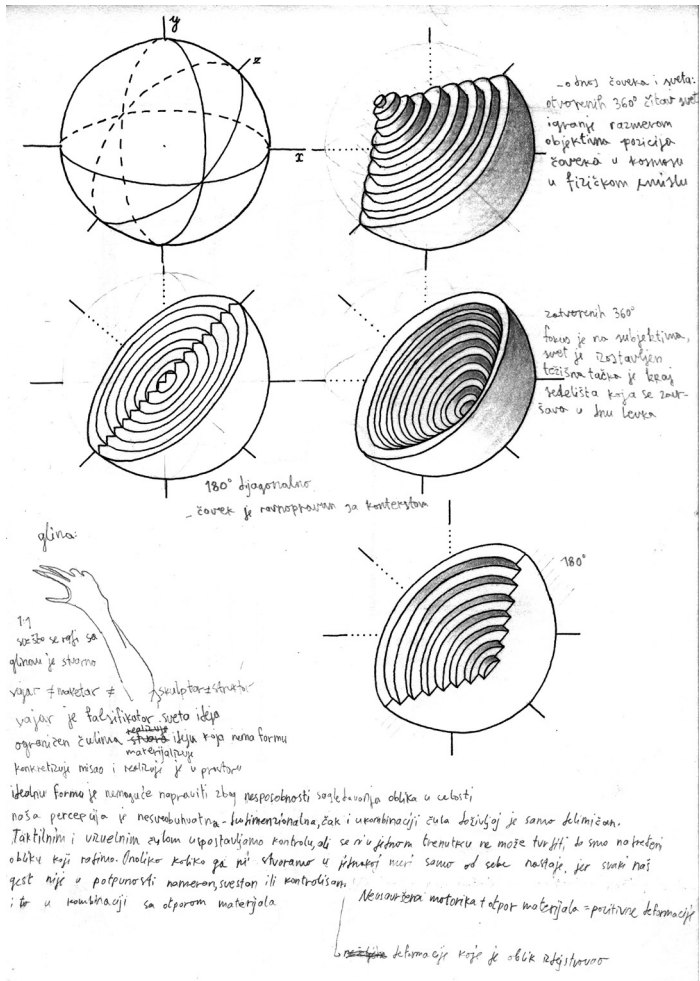 y
z
x
- odnos čoveka i sveta:
otvorenih 360° čitav svet
igranje razmerom
objektivna pozicija
čoveka u kosmosu
u fizičkom smislu
zatvorenih 360°
fokus je na subjektima,
svet je izostavljen
težišna tačka je kraj
sedelišta koja se zavr-
šava u dnu levka
180° dijagonalno
- čovek je ravnopravan sa kontekstom
180°
glina:
1:1
sve što se radi sa
glinom je stvarno
vajar ≠ maketar ≠
vajar je falsifikator sveta ideja
ograničen čulima realizuje ideju koja nema formu
materijalizuje
konkretizuje misao i realizuje je u prostoru
idealnu formu je nemoguće napraviti zbog nesposobnosti sagledavanja oblika u celosti
naša percepcija je nesveobuhvatna - čak i u kombinaciji čula doživljaj je samo delimičan.
Taktilnim i vizuelnim čulom uspostavljamo kontrolu, ali se ni u jednom trenutku ne može tvrditi, da smo na trećem
obliku koji radimo. Onoliko koliko ga mi stvaramo u jednakoj meri samo od sebe nastaje, jer svaki naš
gest nije u potpunosti nameran, svestan ili kontrolisan.
i to u kombinaciji sa otporom materijala
Nesavršena motorika + otpor materijala = pozitivne deformacije
deformacije koje je oblik izdejstvovao